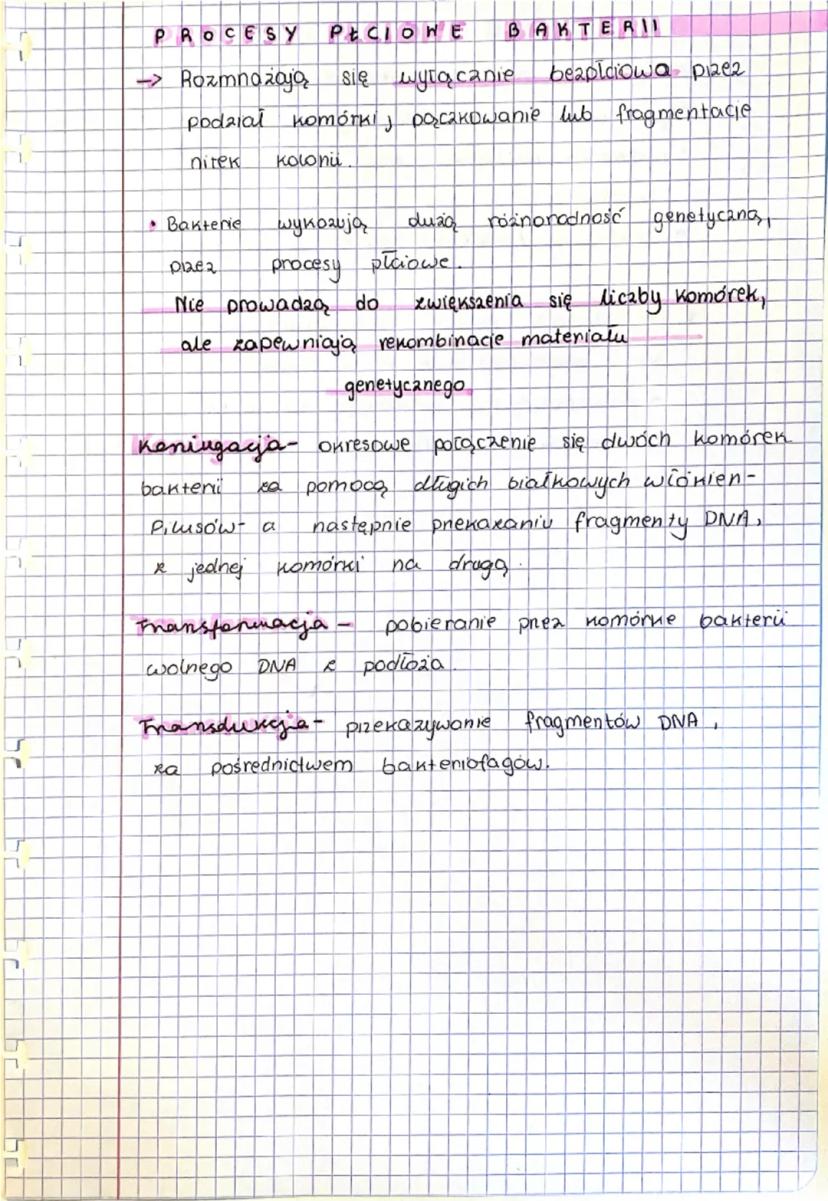 PROCESY PŁCIOWE BAKTERII
-> Rozmnażają się wyłącznie bezpłciowo przez
podział komórki, pączkowanie lub fragmentacje
nitek kolonii.
• Bakterie wykazują dużą różnorodność genetyczną,
przez procesy płciowe.
Nie prowadzą do zwiększenia się liczby komórek,
ale zapewniają rekombinacje materiału
genetycznego
Koniugacja- okresowe połączenie się dwóch komórek
bakterii za pomocą długich białkowych włókien-
Pilusów- a następnie przekazaniu fragmenty DNA,
z jednej komórki na drugą.
Transformacja - pobieranie przez komórkę bakterii
wolnego DNA z podłoża.
Transdukcja- przekazywanie fragmentów DNA,
za pośrednictwem bakteriofagów.